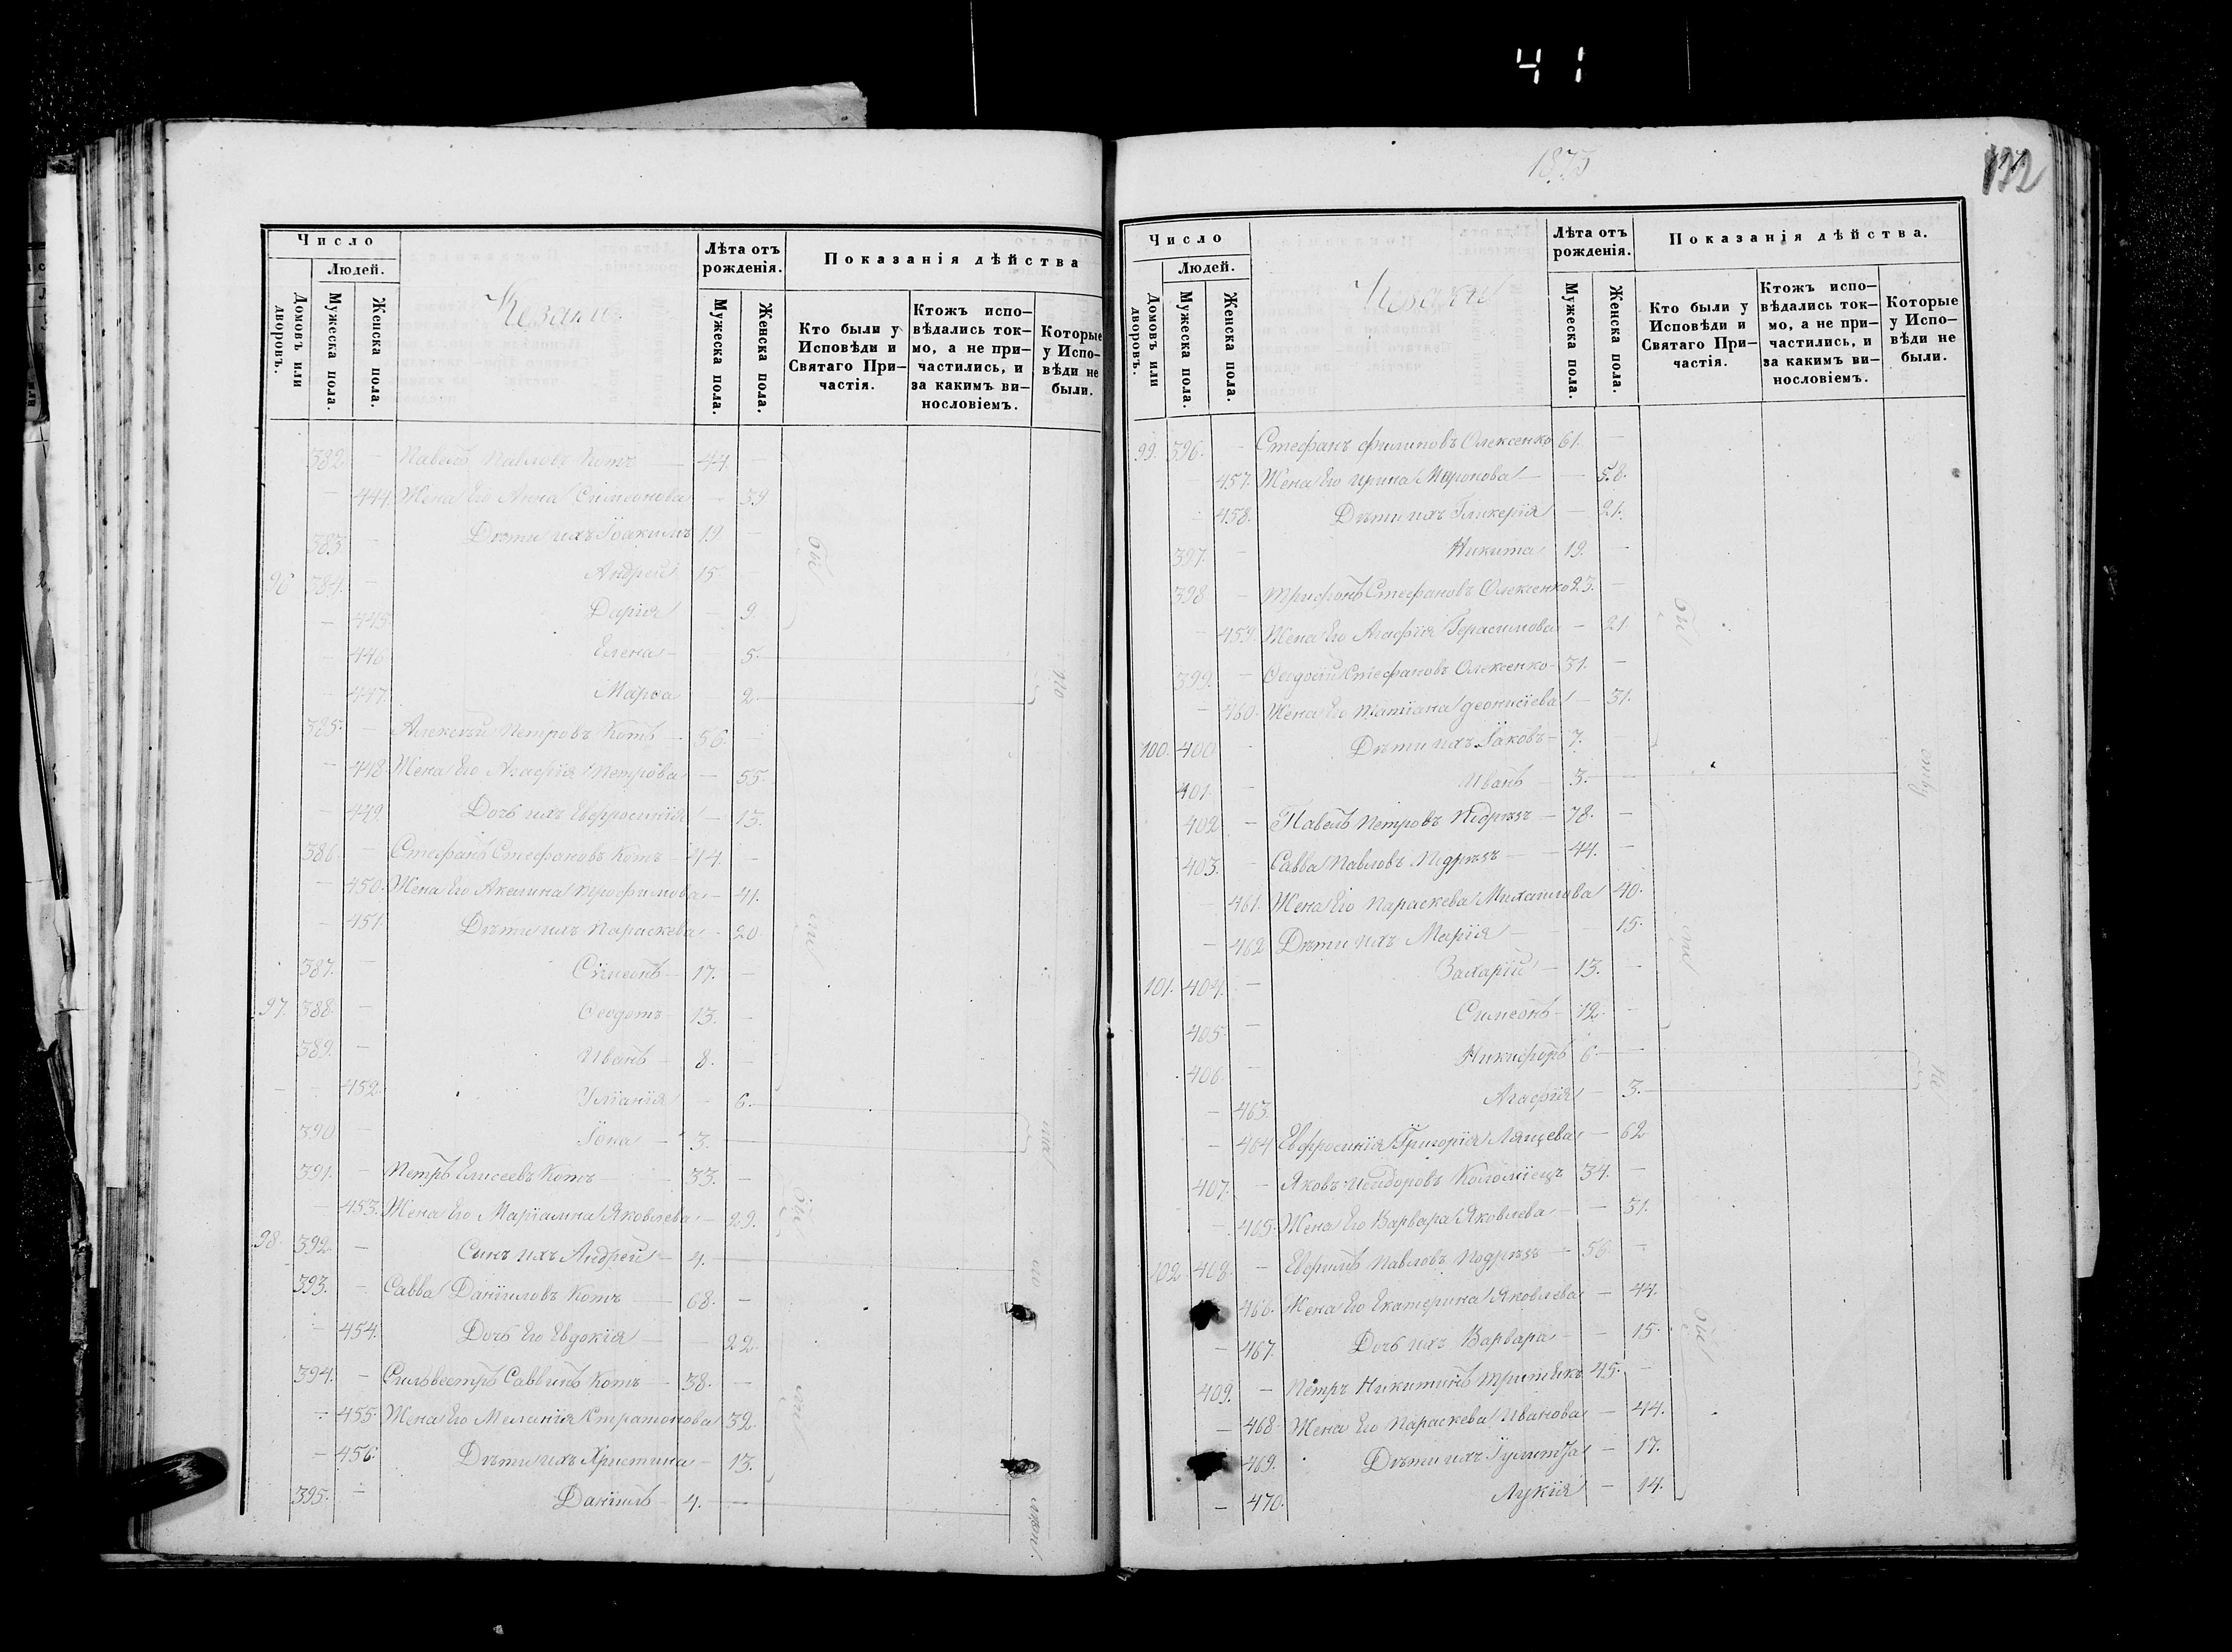 41
Число
Людей.
Домовъ или дворовъ.
Мужеска пола.
Женска пола.
Козаки.
Лѣта отъ рожденія.
Мужеска пола.
Женска пола.
Показанія дѣйства
Кто были у Исповѣди и Святаго При-частія.
Ктожъ испо-вѣдались ток-мо, а не при-частились, и за какимъ ви-нословіемъ.
Которые у Испо-вѣди не были.
382. — Павелъ Павловъ Котъ — 44. —
— 444. Жена Его Анна Симеонова — 39
383. — Дѣти ихъ Іоакимъ 19 —
96 384. — Андрей 15. —
— 445. Дарія — 9.
— 446 Елена — 5.
— 447. Марѳа — 2.
385. — Алексѣй Петровъ Котъ — 56. —
— 448. Жена Его Агафія Петрова — 55.
— 449. Дочь ихъ Евфросинія — 13.
386. — Стефанъ Стефановъ Котъ — 44. —
— 450. Жена Его Акелина Трофимова — 41.
— 451. Дѣти ихъ Параскева — 20.
387. — Симеонъ — 17. —
97. 388. — Ѳеодотъ 13. —
389. — Иванъ — 8. —
— 452. Уліанія — 6.
390 — Іона — 3.
391. — Петръ Елисеевъ Котъ — 33. —
— 453. Жена Его Маріамна Яковлева — 29.
98. 392. — Сынъ ихъ Андрей — 4. —
393. — Савва Даніиловъ Котъ — 68. —
— 454. Дочь Его Евдокія — 22.
394. — Сильвестръ Саввинъ Котъ — 38. —
— 455. Жена Его Меланія Стратонова 32.
— 456. Дѣти ихъ Христина — 13.
395. — Даніилъ — 4. —
1875
132
Число
Людей.
Домовъ или дворовъ.
Мужеска пола.
Женска пола.
Козаки
Лѣта отъ рожденія.
Мужеска пола.
Женска пола.
Показанія дѣйства.
Кто были у Исповѣди и Святаго При-частія.
Ктожъ испо-вѣдались ток-мо, а не при-частились, и за какимъ ви-нословіемъ.
Которые у Испо-вѣди не были.
99. 396. — Стефанъ Филиповъ Олексенко 61. —
— 457. Жена Его Ирина Миронова — 58.
458. Дѣти ихъ Гликерія — 21.
397. — Никита 19. —
398 — Трифонъ Стефановъ Олексенко 23. —
— 459. Жена Его Агафія Герасимова — 21
399. — Ѳеодосій Стефановъ Олексенко 31. —
— 460. Жена Его Татіана Деонисіева — 31.
100. 400 — Дѣти ихъ Іаковъ — 7. —
401. — Иванъ — 3. —
402 — Павелъ Петровъ Подрѣзъ — 78. —
403. — Савва Павловъ Подрѣзъ — 44. —
— 461. Жена Его Параскева Михаилова 40.
— 462 Дѣти ихъ Марія — 15.
101. 404. — Захарій — 13. —
405. — Симеонъ — 12. —
406. — Никифоръ 6 —
— 463. Агафія — 3.
— 464 Евфросинія Григорія — 62
407. — Яковъ Исидоровъ Коломіецъ 34. —
— 465. Жена Его Варвара Яковлева — 31.
102 408. — Евфимъ Павловъ Подрѣзъ — 56. —
466. Жена Его Екатерина Яковлева — 44.
— 467. Дочь ихъ Варвара — 15.
409. — Петръ Никитинъ 45. —
— 468 Жена Его Параскева Иванова — 44.
469. Дѣти ихъ Іулитта — 17.
— 470. Лукія — 14.